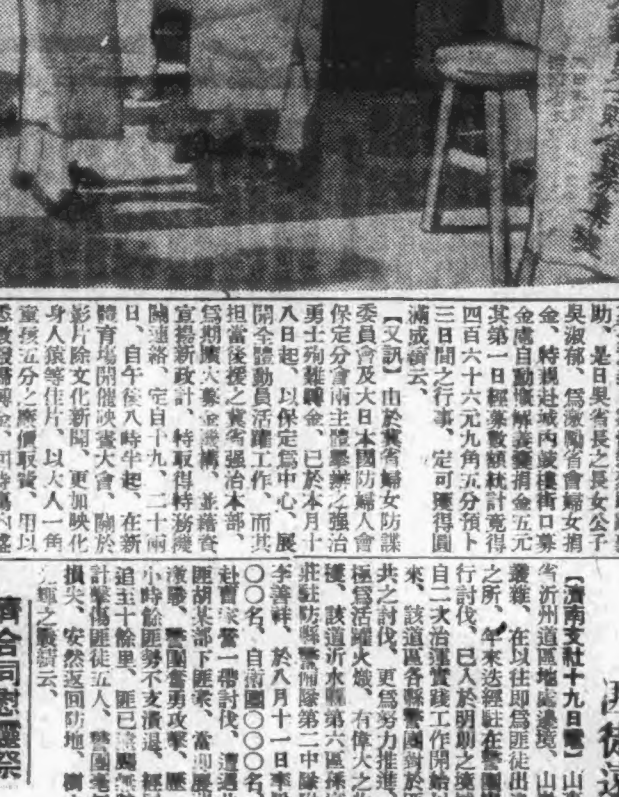 助、是日吳省長之長女公子
吳淑郁、爲激勵省會婦女捐
金、特親赴城內鼓樓街口募
金處自動慨解義囊捐金五元
其第一日經募數額統計竟得
四百六十六元九角五分預卜
三日間之行事、定可獲得圓
滿成績云、
【又訊】由於冀省婦女防諜
委員會及大日本國防婦人會
保定分會兩主體舉辦之强治
勇士殉難醵金、已於本月十
八日起、以保定爲中心、展
開全體動員活躍工作、而其
担當後援之冀省强治本部、
爲期擴大募金機構、並藉資
宣揚新政計、特取得特務機
關連絡、定自十九、二十兩
日、自午後八時半起、在新
體育場開催映畫大會、關於
影片除文化新聞、更加映化
身人猿等佳片、以大人一角
童孩五分之廉價取費、用以
【濟南支社十九日電】山
省沂州道區地處邊境、山
叢雜、在以往即爲匪徒出
之所、年來迭經駐在警團
行討伐、已入於明朗之境
自二次治運實踐工作開始
來、該道區各縣警團對於
共之討伐、更爲努力推進、
極爲活躍火熾、有偉大之
穫、該道沂水縣第六區孫
莊駐防縣警備隊第二中隊
李善祥、於八月十一日率
〇〇名、自衛團〇〇〇名、
赴曹家 一帶討伐、遭遇
匪胡某部下匪衆、當即展
激戰、警團奮勇攻擊、歷
小時餘匪勢不支潰退、經
追至十餘里、匪已
計擊傷匪徒五人、警團毫
損失、安然返回防地、樹
光輝之戰績云、
濟合同慰靈祭
匪徒遠